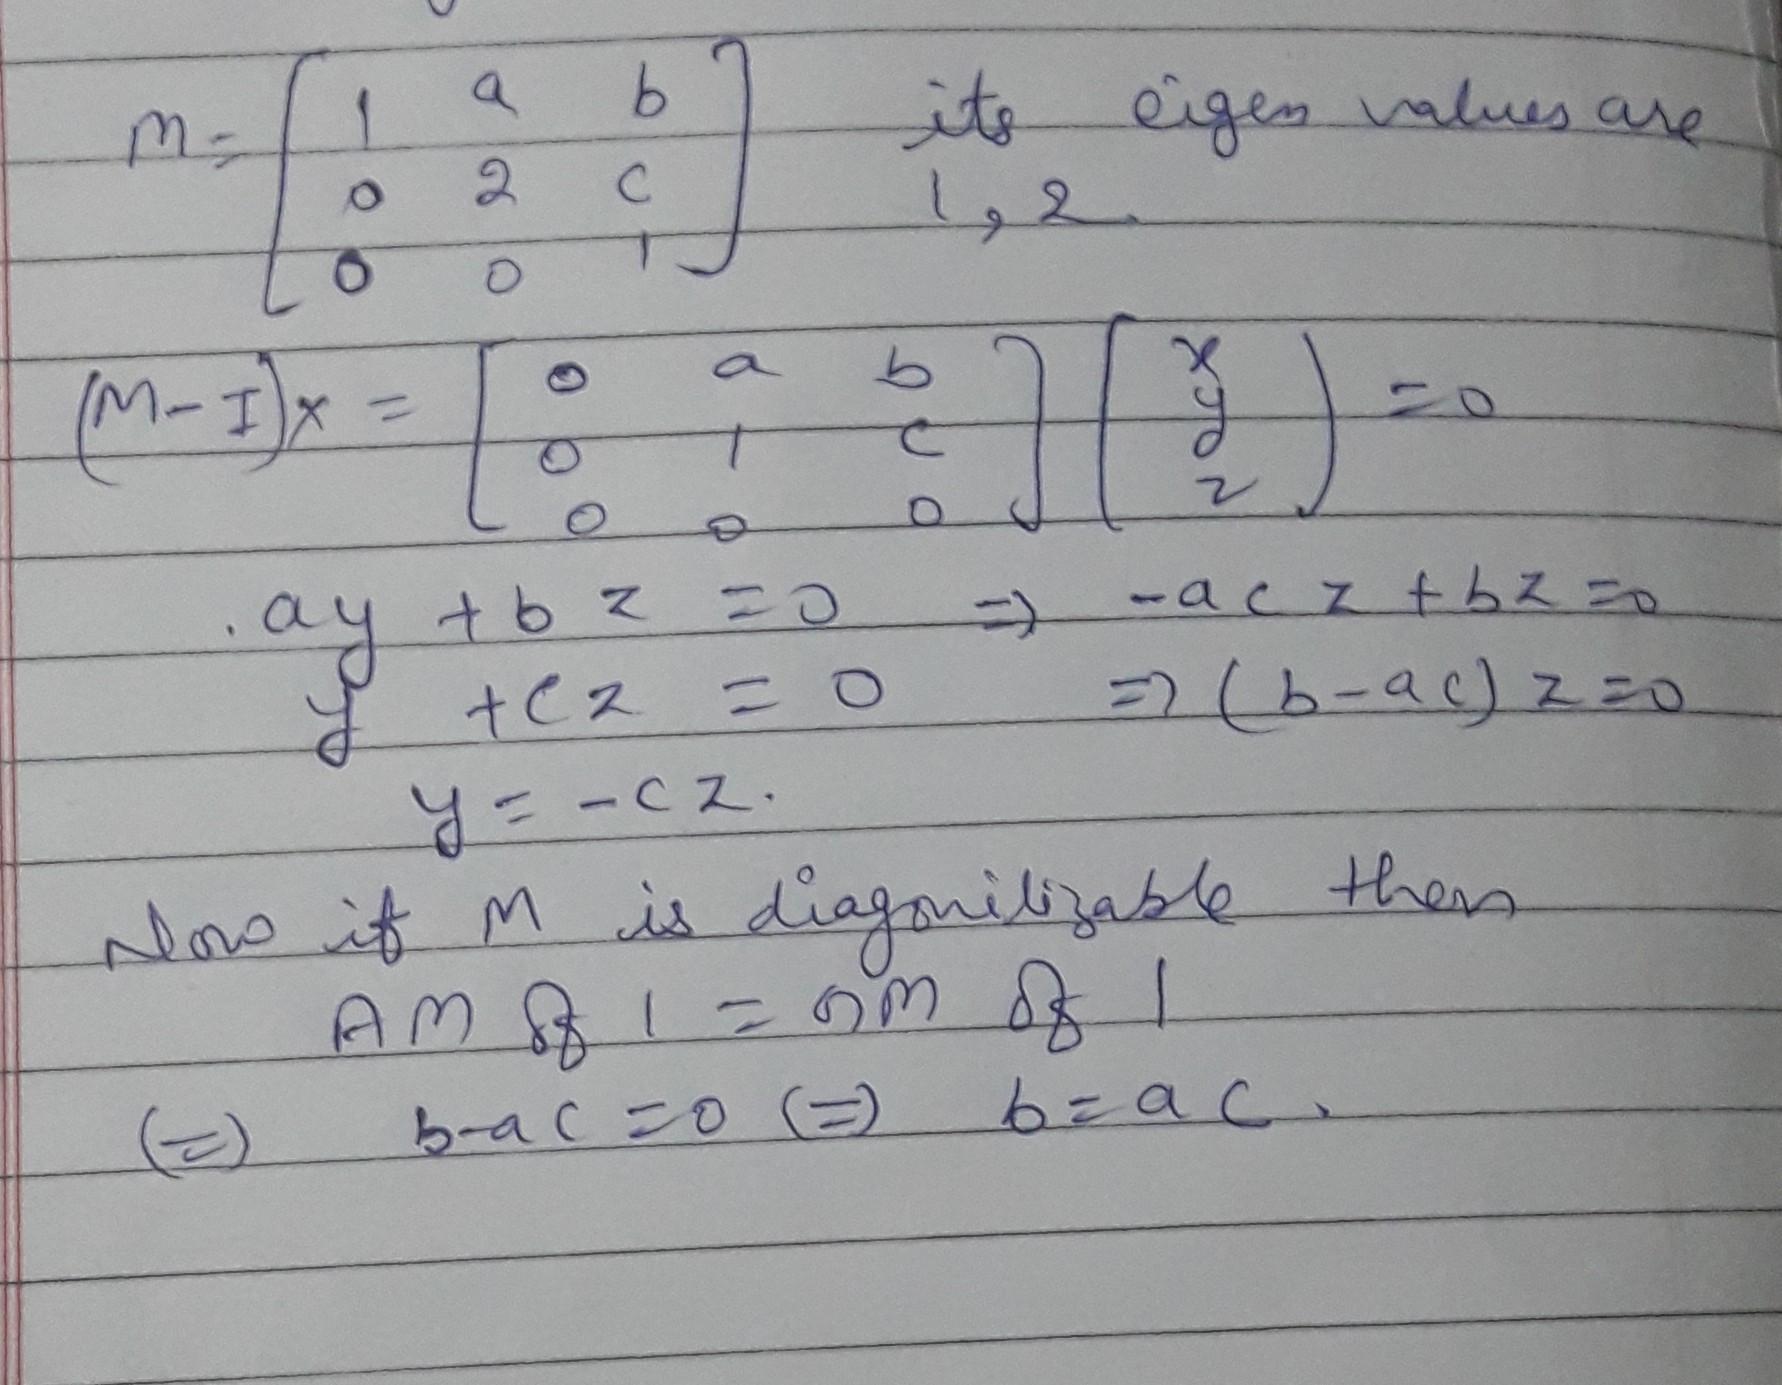 M = [ 1 a b its eigen values are
0 2 c 1, 2.
0 0 1 ]
(M - I)x = [ 0 a b ] [ x
0 1 c y = 0
0 0 0 z ]
. ay + bz = 0 => -acz + bz = 0
y + cz = 0 => (b - ac) z = 0
y = -cz.
Now if M is diagonilizable then
AM of 1 = GM of 1
(=) b-ac = 0 (=) b = ac.